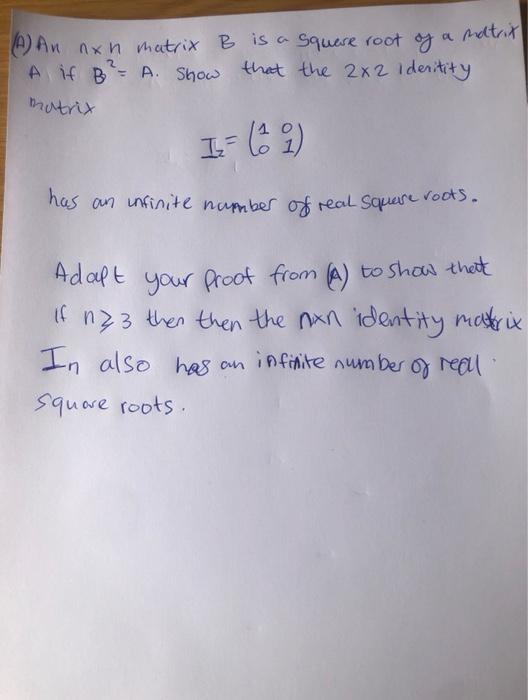 (A) An n×n matrix B is a square root of a matrix
A if B² = A. Show that the 2×2 identity
matrix
I₂ = (1 0
0 1)
has an infinite number of real square roots.
Adapt your proof from (A) to show that
if n ≥ 3 then then the n×n identity matrix
In also has an infinite number of real
square roots.